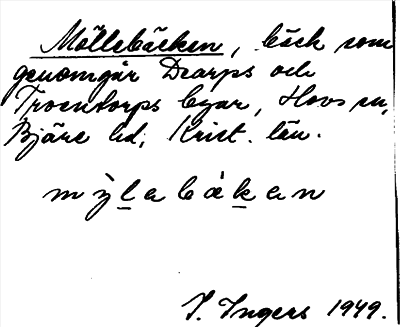 Möllebäcken, bäck som
genomgår Dearps och
Troentorps byar, Hovs sn,
Bjäre hd, Krist. län.
m ỳ l a b ä k a n
I. Ingers 1949.